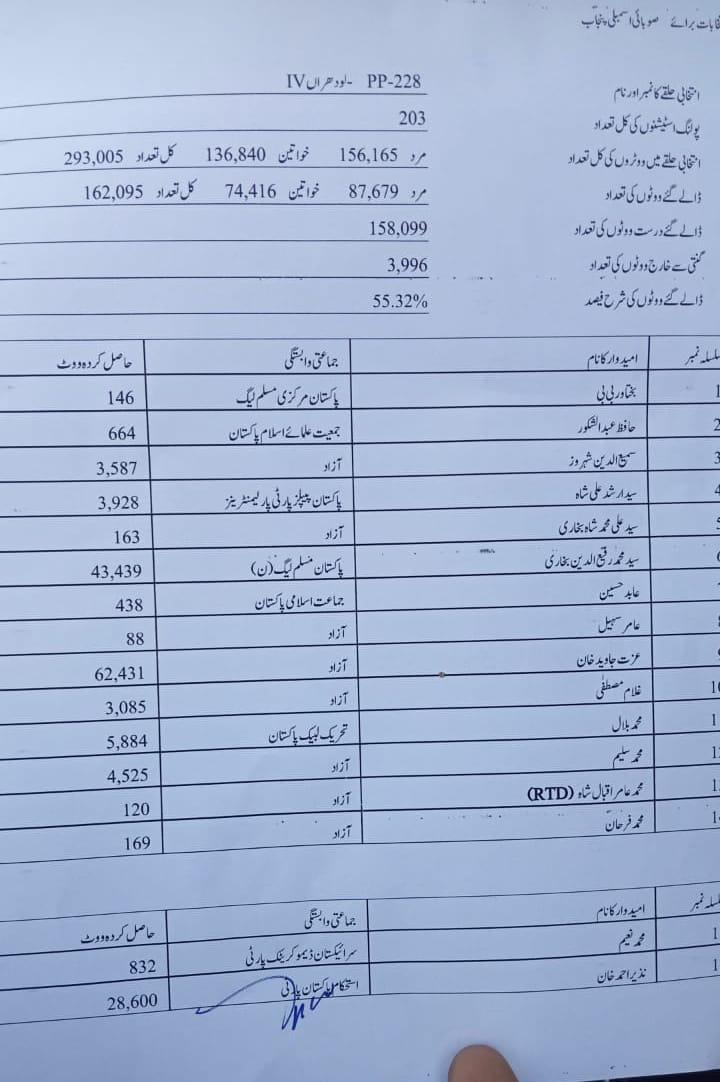 صوبائی اسمبلی پنجاب برائے
انتخابی حلقے کا نمبر اور نام PP-228 -لودھراں IV
پولنگ اسٹیشنوں کی کل تعداد 203
انتخابی حلقے میں ووٹروں کی کل تعداد مرد 156,165 خواتین 136,840 کل تعداد 293,005
ڈالے گئے ووٹوں کی تعداد مرد 87,679 خواتین 74,416 کل تعداد 162,095
ڈالے گئے درست ووٹوں کی تعداد 158,099
گنتی سے خارج ووٹوں کی تعداد 3,996
ڈالے گئے ووٹوں کی شرح فیصد 55.32%
سلسلہ نمبر امیدوار کا نام جماعتی وابستگی حاصل کردہ ووٹ
1 بختاور بی بی پاکستان مرکزی مسلم لیگ 146
2 حافظ عبدالشکور جمعیت علمائے اسلام پاکستان 664
3 سمیع الدین شہروز آزاد 3,587
4 سید ارشد علی شاہ پاکستان پیپلز پارٹی پارلیمنٹرینز 3,928
5 سید علی محمد شاہ بخاری آزاد 163
سید محمد رفیع الدین بخاری پاکستان مسلم لیگ (ن) 43,439
عابد حسین جماعت اسلامی پاکستان 438
عامر سہیل آزاد 88
عزت جاوید خان آزاد 62,431
10 غلام مصطفی آزاد 3,085
1 محمد بلال تحریک لبیک پاکستان 5,884
1 محمد سلیم آزاد 4,525
1 محمد عامر اقبال شاہ (RTD) آزاد 120
1 محمد فرحان آزاد 169
سلسلہ نمبر امیدوار کا نام جماعتی وابستگی حاصل کردہ ووٹ
1 محمد نعیم سرائیکستان ڈیموکریٹک پارٹی 832
1 نذیر احمد خان استحکام پاکستان پارٹی 28,600